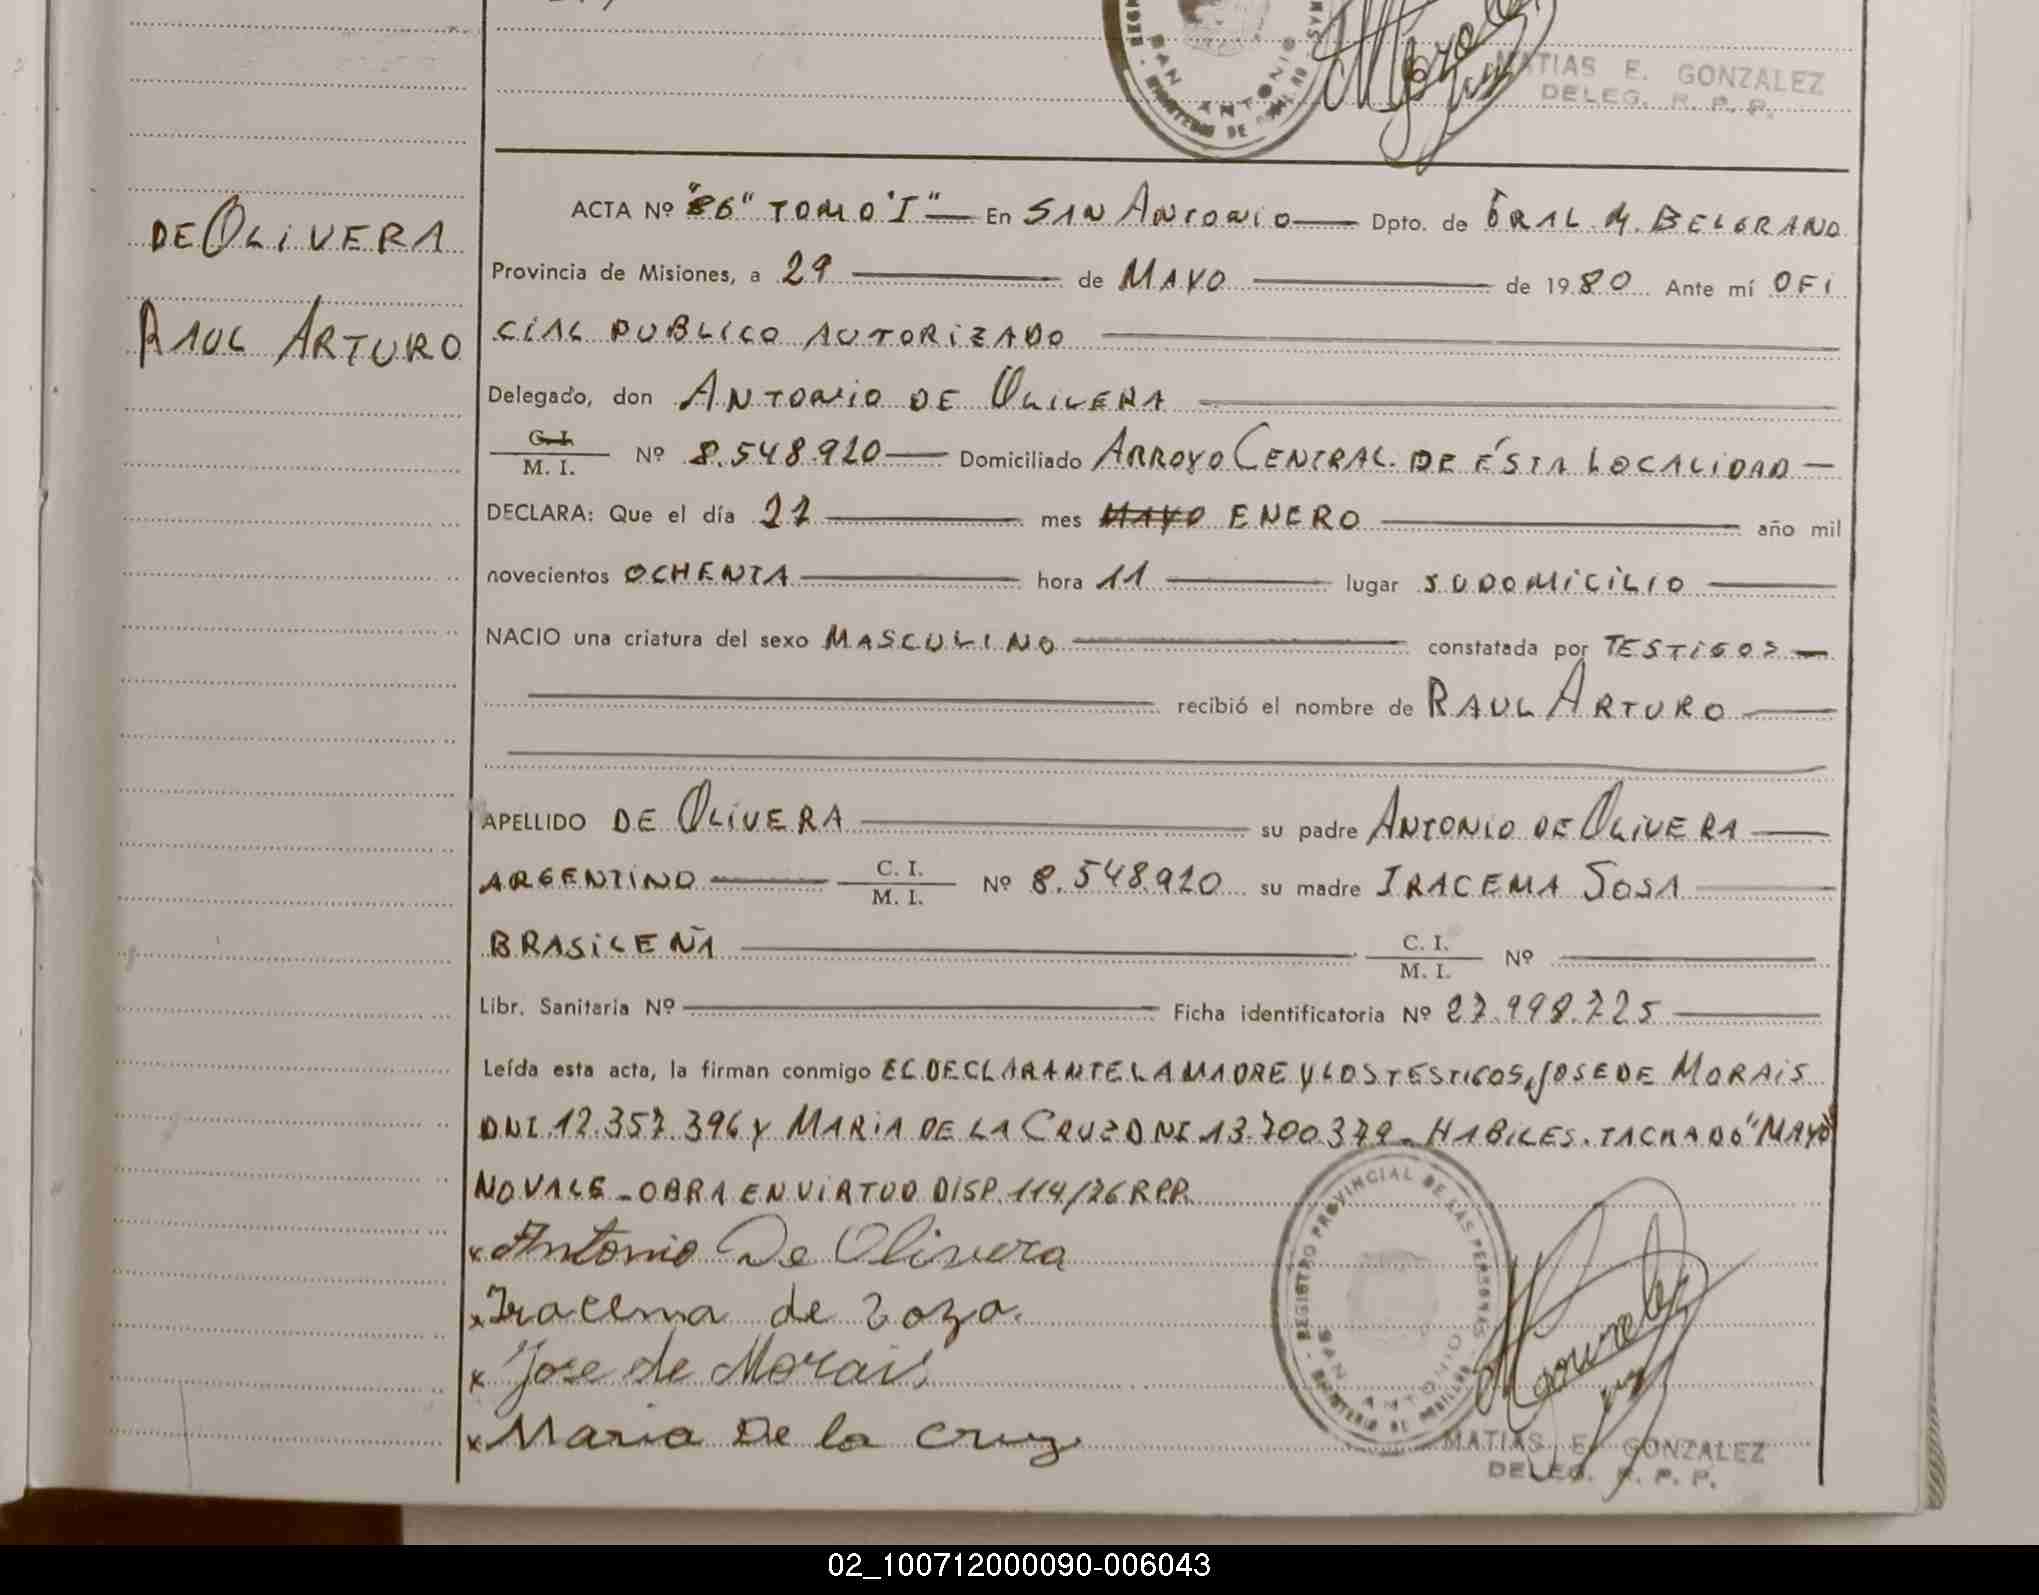 MATIAS E. GONZALEZ
DELEG. R. P. P.
SAN ANTONIO
DE OLIVERA
RAUL ARTURO
ACTA Nº "86" TOMO "I" En SAN ANTONIO Dpto. de GRAL. M. BELGRANO
Provincia de Misiones, a 29 de MAYO de 1980 Ante mí OFI
CIAL PUBLICO AUTORIZADO
Delegado, don ANTONIO DE OLIVERA
C. I. / M. I. Nº 8.548.920 Domiciliado ARROYO CENTRAL. DE ÉSTA LOCALIDAD
DECLARA: Que el día 27 mes MAYO ENERO año mil
novecientos OCHENTA hora 11 lugar SU DOMICILIO
NACIO una criatura del sexo MASCULINO constatada por TESTIGOS
recibió el nombre de RAUL ARTURO
APELLIDO DE OLIVERA su padre ANTONIO DE OLIVERA
ARGENTINO C. I. / M. I. Nº 8.548.920 su madre IRACEMA SOSA
BRASILEÑA C. I. / M. I. Nº
Libr. Sanitaria Nº Ficha identificatoria Nº 27.998.725
Leída esta acta, la firman conmigo EL DECLARANTE LA MADRE Y LOS TESTIGOS, JOSE DE MORAIS
DNI 12.357.396 y MARIA DE LA CRUZ DNI 13.700.379. HABILES. TACHADO "MAYO"
NO VALE - OBRA EN VIRTUD DISP. 114/76 R.P.P.
x Antonio De Olivera
x Iracema de Soza.
x Jose de Morais
x Maria De la Cruz
REGISTRO PROVINCIAL DE LAS PERSONAS
SAN ANTONIO
MATIAS E. GONZALEZ
DELEG. R. P. P.
02_100712000090-006043